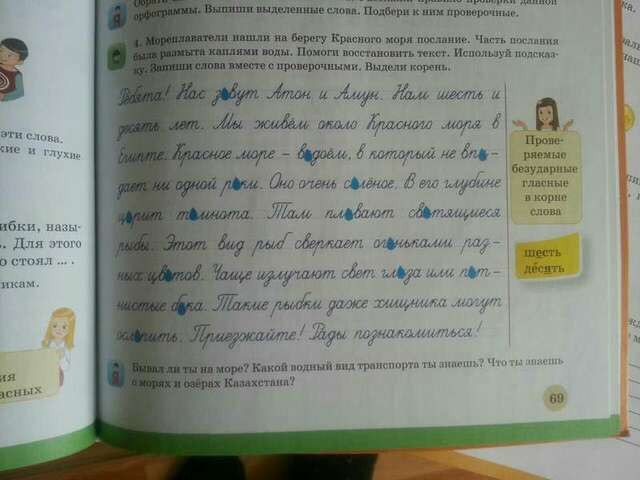 орфограммы. Выпиши выделенные слова. Подбери к ним проверочные.
4. Мореплаватели нашли на берегу Красного моря послание. Часть послания
была размыта каплями воды. Помоги восстановить текст. Используй подсказ-
ку. Запиши слова вместе с проверочными. Выдели корень.
Ребята! Нас з вут Атон и Амун. Нам шесть и
десять лет. Мы живём около Красного моря в
Египте. Красное море – в доём, в который не вп -
дает ни одной р ки. Оно очень с лёное. В его глубине
ц рит т мнота. Там пл вают св тящиеся
рыбы. Этот вид рыб сверкает ог ньками раз-
ных цв тов. Чаще излучают свет гл за или п т-
нистые б ка. Такие рыбки даже хищника могут
осл пить. Приезжайте! Рады познакомиться!
Прове-
ряемые
безударные
гласные
в корне
слова
шесть
десять
Бывал ли ты на море? Какой водный вид транспорта ты знаешь? Что ты знаешь
о морях и озёрах Казахстана?
69
эти слова.
кие и глухие
ибки, назы-
ь. Для этого
о стоял ... .
никам.
ия
асных